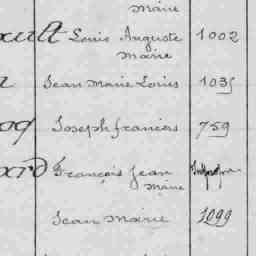 Marie
ault Louis Auguste 1002
Marie
Jean Marie Louis 1035
oq Joseph francois 759
ard François Jean
Marie
Jean Marie 1099